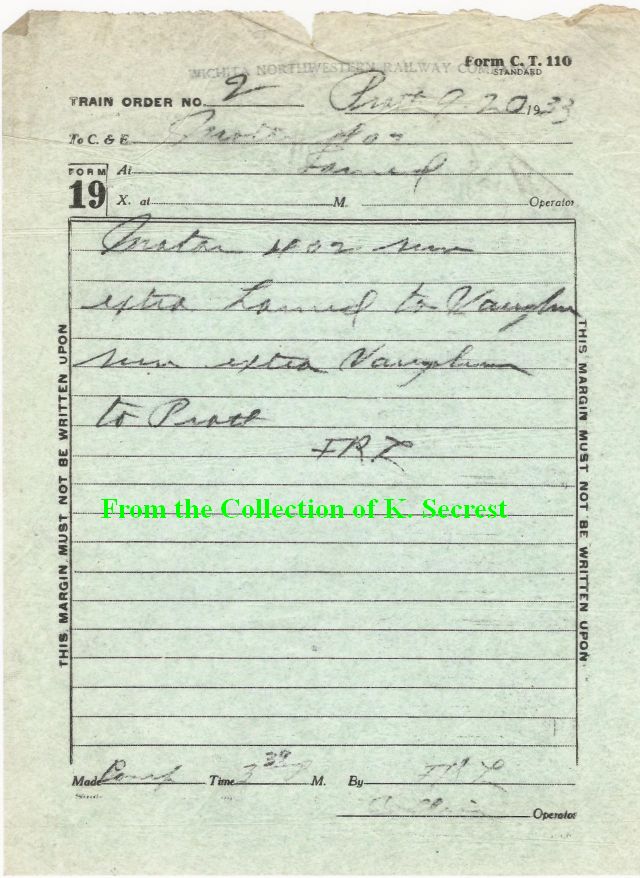 Form C. T. 110
STANDARD
WICHITA NORTHWESTERN RAILWAY COMPANY
TRAIN ORDER NO. 2 Pratt 9-20 1933
To C. & E. Motor 402
FORM
19
At Larned
X. at M. Operator
Motor 402 run
extra Larned to Vaughn
run extra Vaughn
to Pratt
From the Collection of K. Secrest
THIS MARGIN MUST NOT BE WRITTEN UPON
THIS MARGIN MUST NOT BE WRITTEN UPON
Made Comp Time M. By
Operator